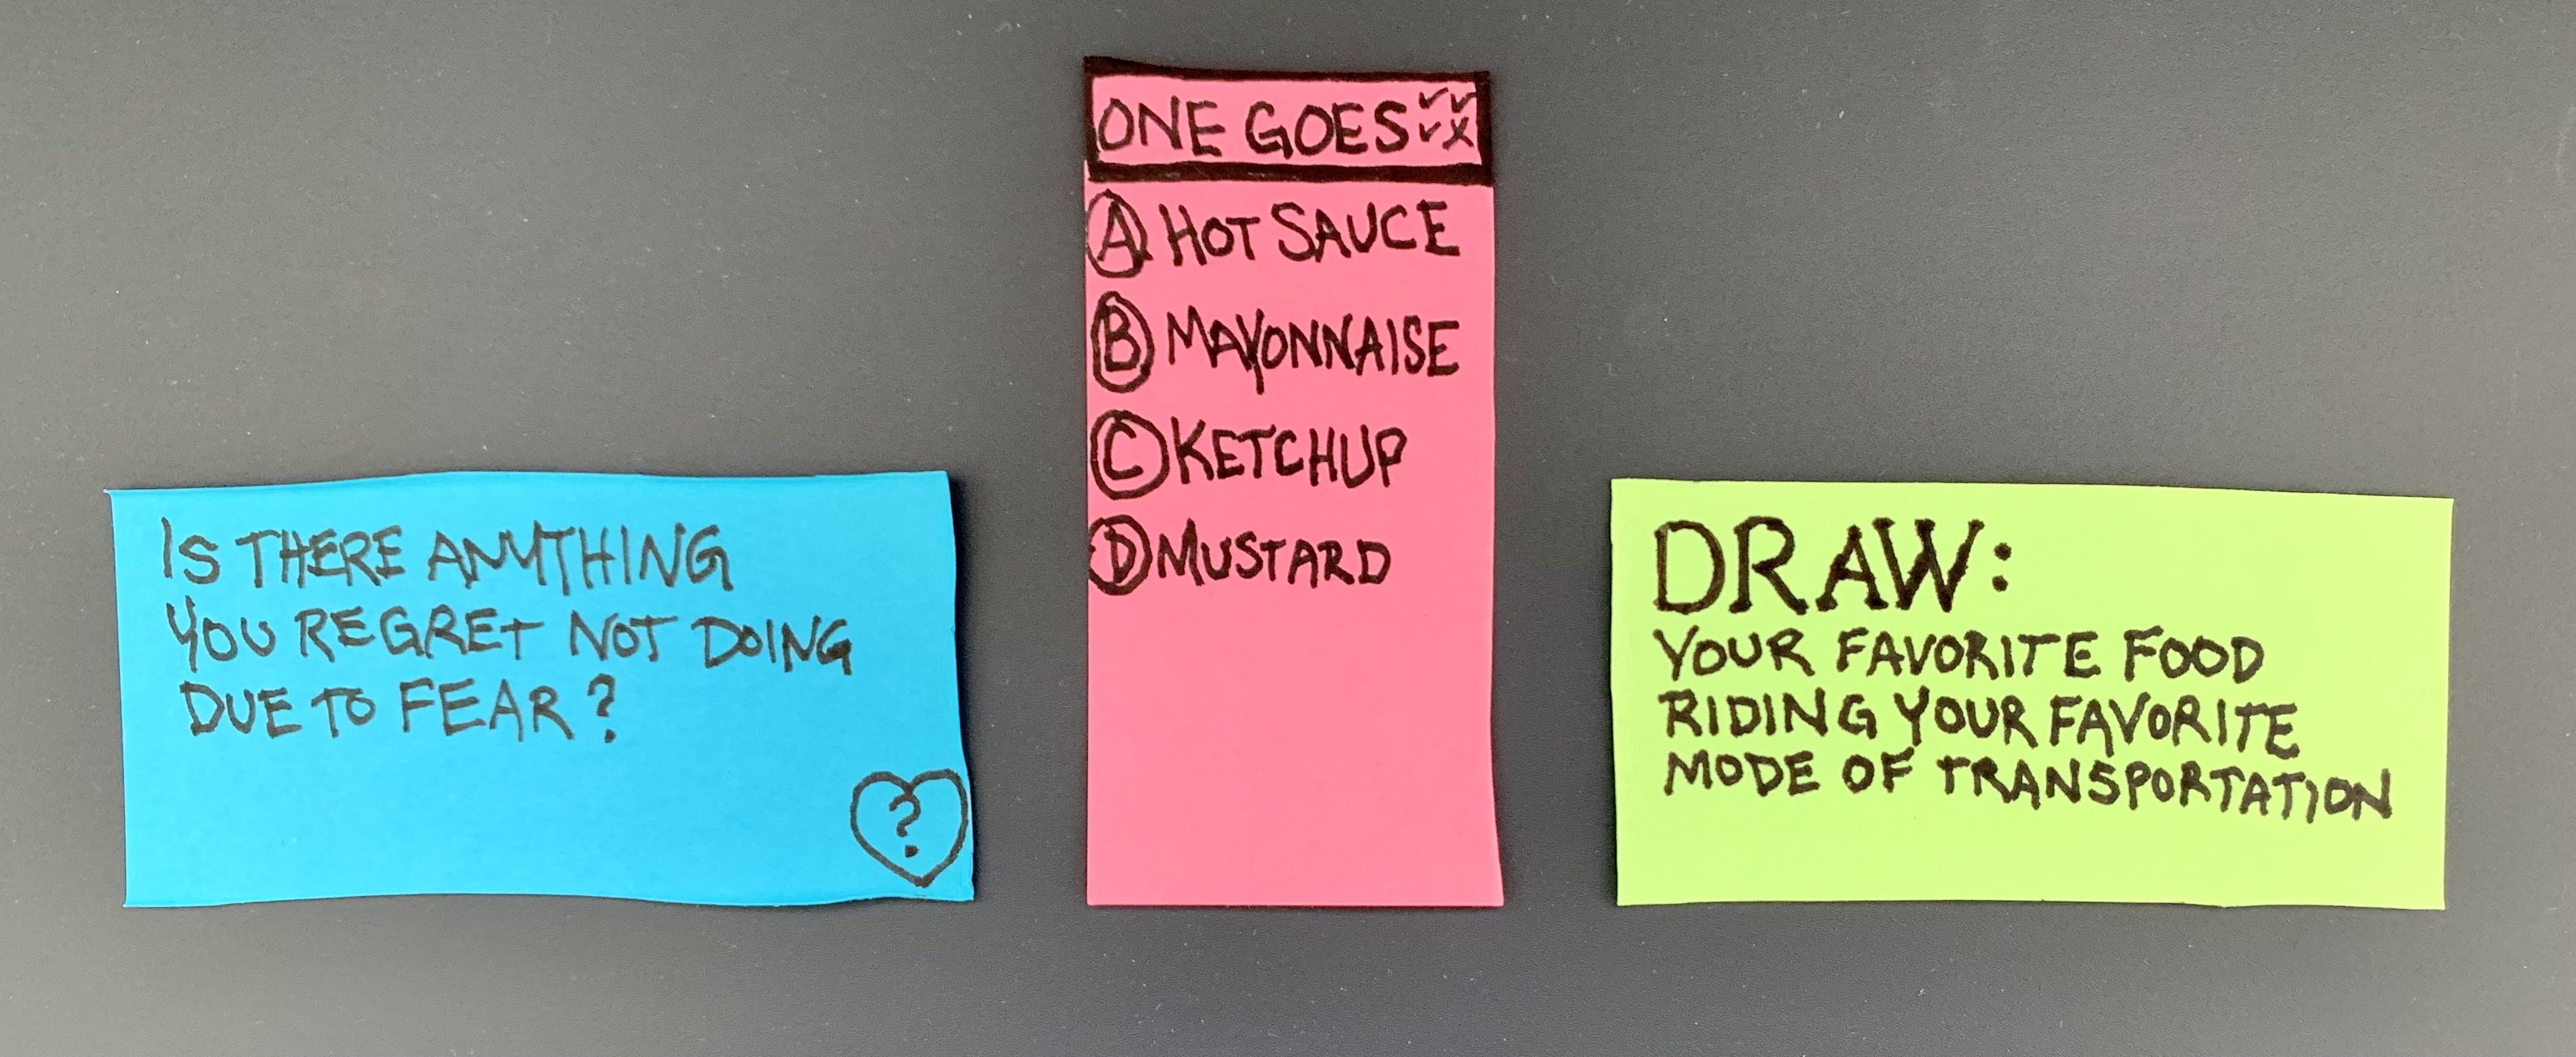 IS THERE ANYTHING
YOU REGRET NOT DOING
DUE TO FEAR?
?
ONE GOES ✓✓✓X
A HOT SAUCE
B MAYONNAISE
C KETCHUP
D MUSTARD
DRAW:
YOUR FAVORITE FOOD
RIDING YOUR FAVORITE
MODE OF TRANSPORTATION